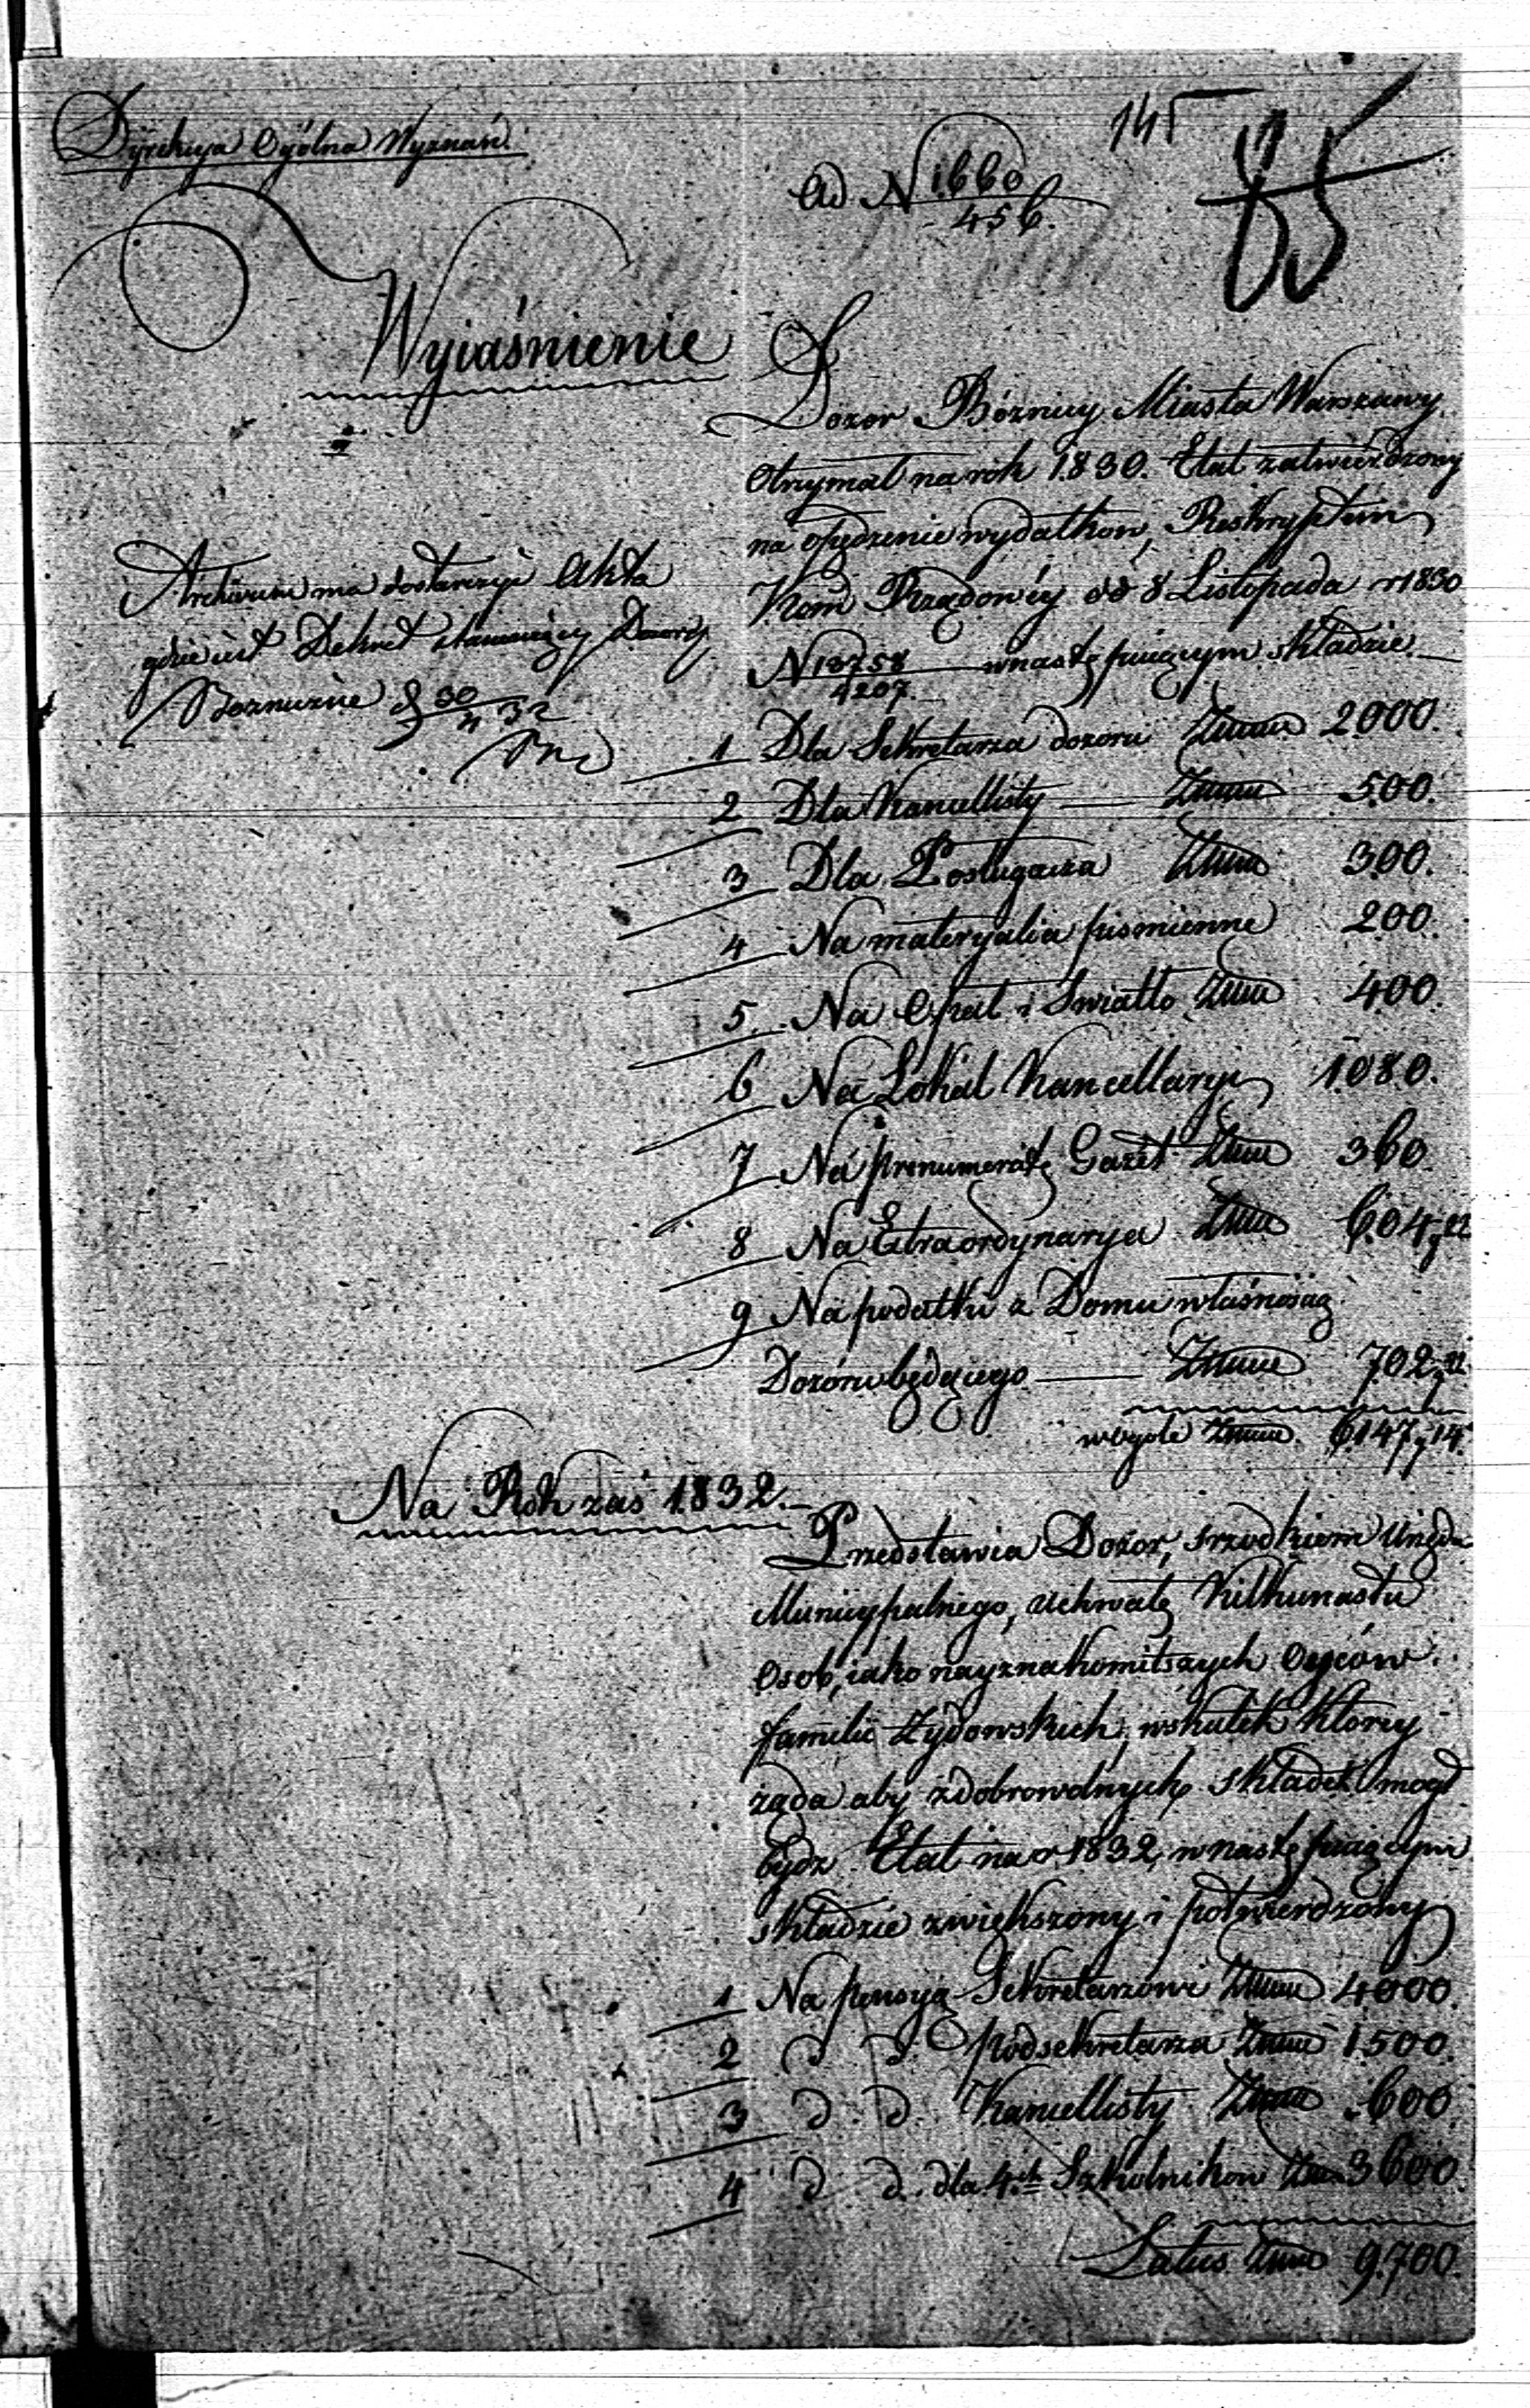 Dyrekcja Ogólna Wyznań
145
85
Ad N 1660
456.
Wyiaśnienie
Dozor Bóżnicy Miasta Warszawy
Otrzymał na rok 1830. Etat zatwierdzony
na opędzenie wydatkow, Reskryptem
Kom Rządowéy dd 8 Listopada r 1830
N 13758 w następuiącym składzie
4207.
Archiwum ma dostarczyć Akta
gdzie iest Dekret stanowiący Dozory
Boznicze d 30/4 32
1 Dla Sekretarza dozoru Znnn 2000.
2 Dla Kancellisty Znnn 500.
3 Dla Posługacza Znnn 300.
4 Na materyalia pismienne 200.
5. Na Opał i Swiatło Znnn 400.
6 Na Lokal Kancellaryi 1080.
7 Na prenumeratę Gazet Znnn 360
8 Na Extraordynarya Znnn 604,22
9 Na podatki z Domu własnością
Dozoru będącego Znnn 702,22
wogole Znnn 6147,14.
Na Rok zaś 1832.
Przedstawia Dozor, srzodkiem Urzędu
Municypalnego, uchwałę Kilkunastu
Osob, iako nayznakomitszych Oyców
familii Zydowskich, wskutek ktorey
żąda aby z dobrowolnych składek mogł
bydz Etat na r 1832, w następuiącym
składzie zwiększony i potwierdzony
1 Na pensyą Sekretarzowi Znnn 4000.
2 d d. podsekretarza Znnn 1500.
3 d. d. Kancellisty Znnn 600.
4 d d. dla 4ch Szkolnikow Znnn 3600
Latus Znnn 9.700.